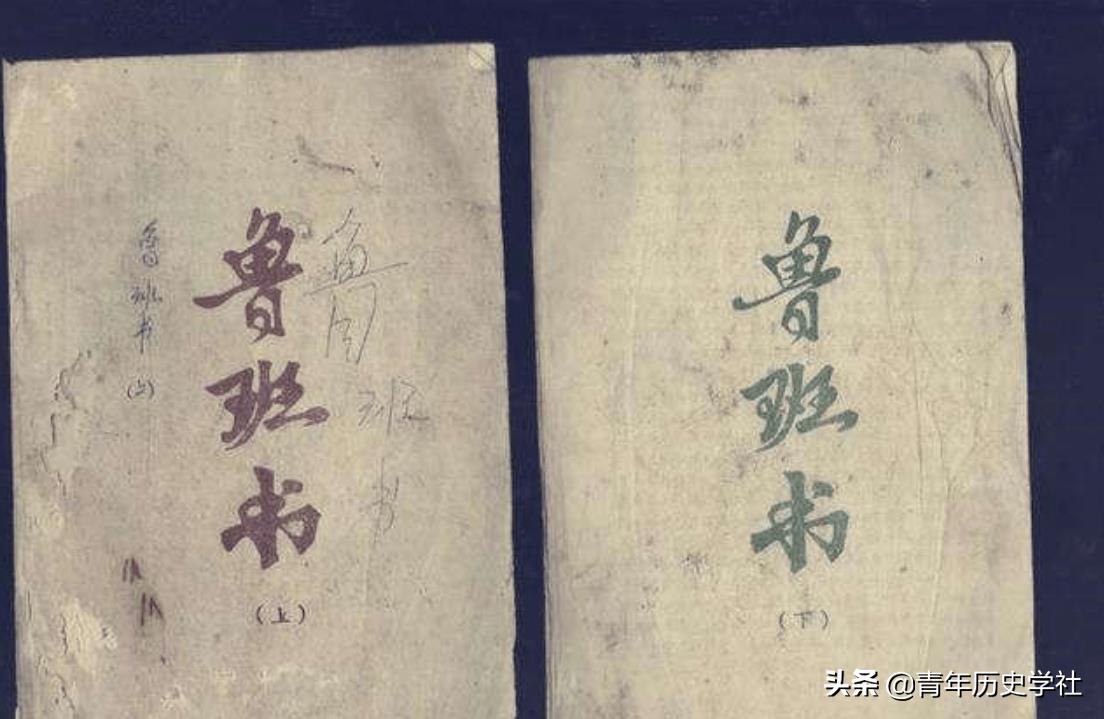 鲁班书
（上）
鲁班书
鲁班书
（上）
鲁班书
（下）
头条 @青年历史学社